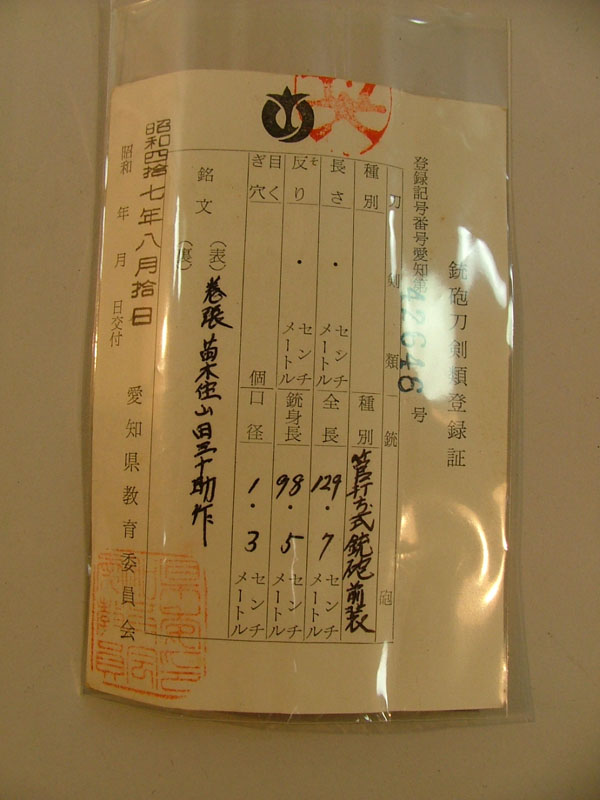 銃砲刀剣類登録証
登録記号番号愛知第42646号
刀剣類 銃砲
種別 種別 管打ち式銃砲前装
長さ ・ センチメートル 全長 129・7 センチメートル
反り ・ センチメートル 銃身長 98・5 センチメートル
目くぎ穴 個 口径 1・3 センチメートル
銘文 (表) 巻張 苗木住山田三十助作
(裏)
昭和四拾七年八月拾日
昭和 年 月 日交付
愛知県教育委員会